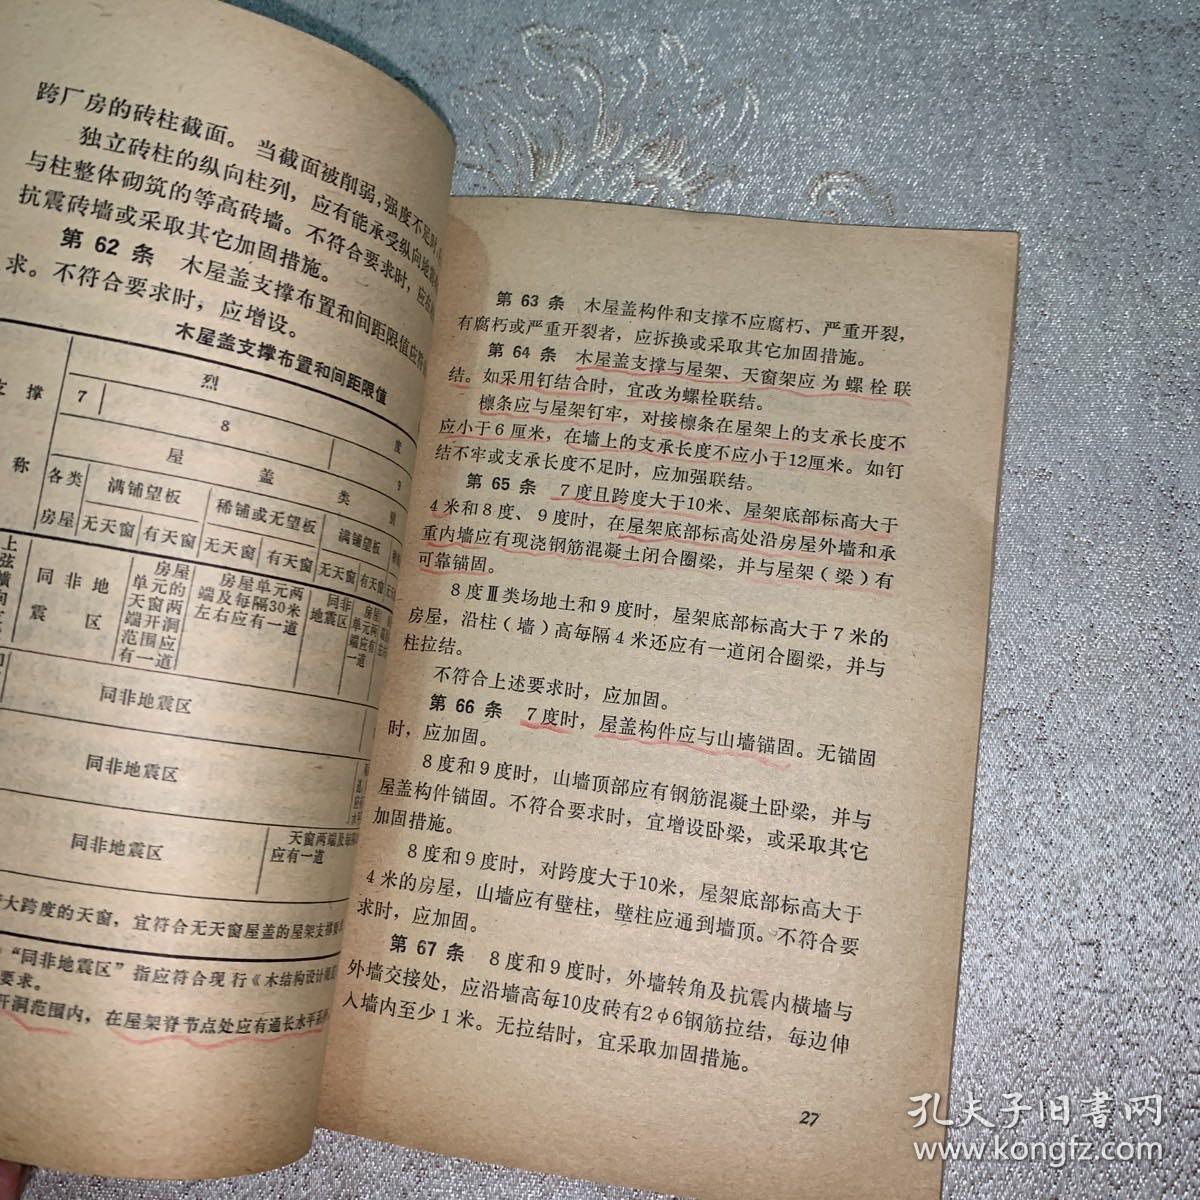 跨厂房的砖柱截面。当截面被削弱,强度不足时,
独立砖柱的纵向柱列,应有能承受纵向地
与柱整体砌筑的等高砖墙。不符合要求时,应在
抗震砖墙或采取其它加固措施。
第62条 木屋盖支撑布置和间距限值应
求。不符合要求时,应增设。
木屋盖支撑布置和间距限值
支撑
称
烈
度
7
8
9
屋盖类别
各类
房屋
满铺望板
稀铺或无望板
满铺望板
无天窗
有天窗
无天窗
有天窗
无天窗
有天窗
上弦横向
同非地
震区
房屋
单元的
天窗两
端开洞
范围应
有一道
房屋单元两
端及每隔30米
左右应有一道
同非
地震区
房屋
单元两
端应有
一道
同非地震区
同非地震区
同非地震区
天窗两端及每隔
应有一道
大跨度的天窗,宜符合无天窗屋盖的屋架支撑
“同非地震区”指应符合现行《木结构设计规范
要求。
开洞范围内,在屋架脊节点处应有通长水平系杆
第63条 木屋盖构件和支撑不应腐朽、严重开裂,
有腐朽或严重开裂者,应拆换或采取其它加固措施。
第64条 木屋盖支撑与屋架、天窗架应为螺栓联
结。如采用钉结合时,宜改为螺栓联结。
檩条应与屋架钉牢,对接檩条在屋架上的支承长度不
应小于6厘米,在墙上的支承长度不应小于12厘米。如钉
结不牢或支承长度不足时,应加强联结。
第65条 7度且跨度大于10米、屋架底部标高大于
4米和8度、9度时,在屋架底部标高处沿房屋外墙和承
重内墙应有现浇钢筋混凝土闭合圈梁,并与屋架(梁)有
可靠锚固。
8度Ⅲ类场地土和9度时,屋架底部标高大于7米的
房屋,沿柱(墙)高每隔4米还应有一道闭合圈梁,并与
柱拉结。
不符合上述要求时,应加固。
第66条 7度时,屋盖构件应与山墙锚固。无锚固
时,应加固。
8度和9度时,山墙顶部应有钢筋混凝土卧梁,并与
屋盖构件锚固。不符合要求时,宜增设卧梁,或采取其它
加固措施。
8度和9度时,对跨度大于10米,屋架底部标高大于
4米的房屋,山墙应有壁柱,壁柱应通到墙顶。不符合要
求时,应加固。
第67条 8度和9度时,外墙转角及抗震内横墙与
外墙交接处,应沿墙高每10皮砖有2φ6钢筋拉结,每边伸
入墙内至少1米。无拉结时,宜采取加固措施。
27
孔夫子旧书网
www.kongfz.com